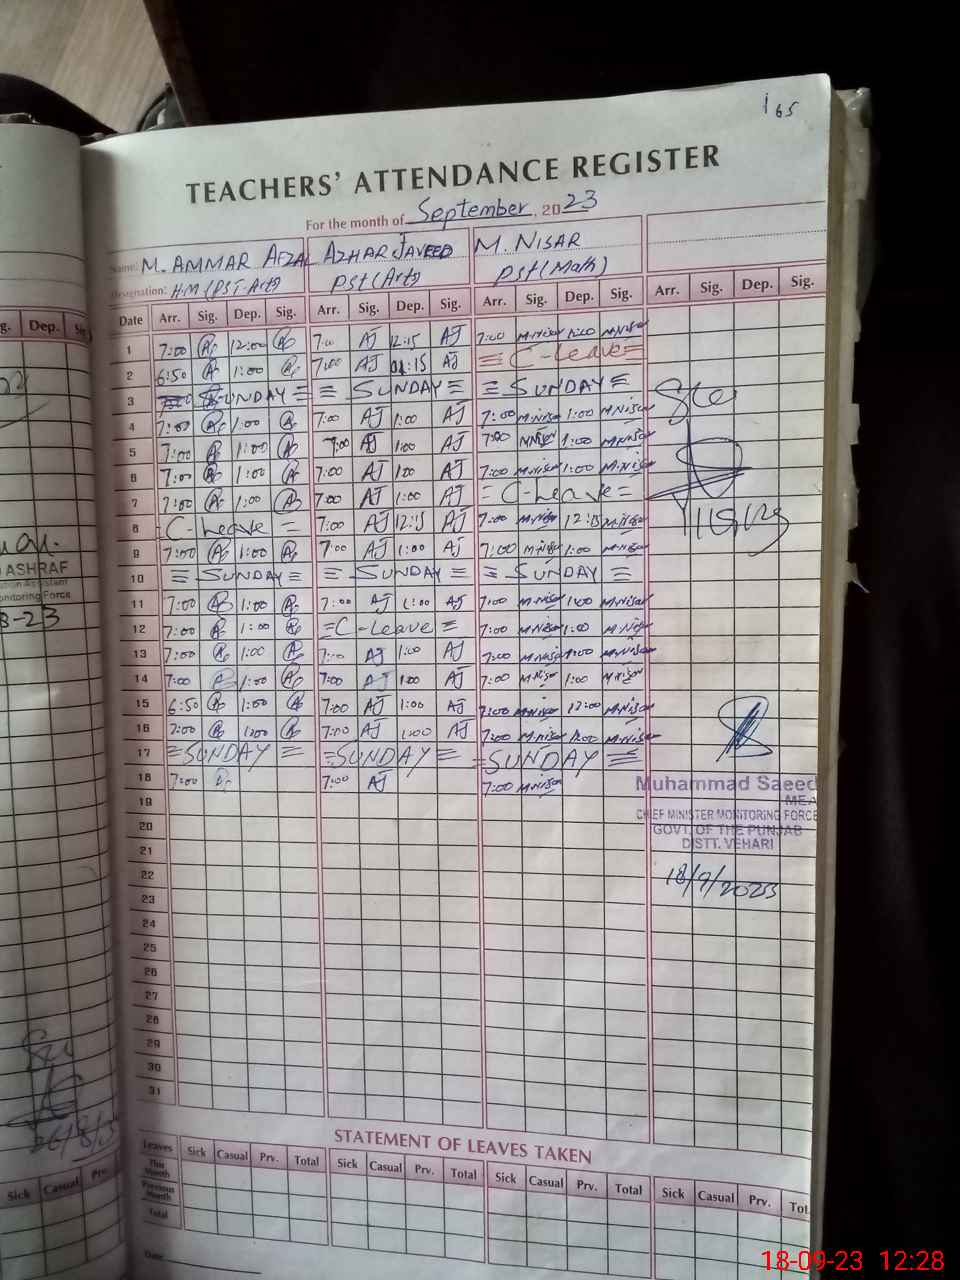 165
TEACHERS' ATTENDANCE REGISTER
For the month of September, 2023
Name: M. AMMAR AFZAL AZHAR JAVEED M. NISAR
Designation: H.M (PST-Arts) PST (Arts) PST (Math)
Date Arr. Sig. Dep. Sig. Arr. Sig. Dep. Sig. Arr. Sig. Dep. Sig. Arr. Sig. Dep. Sig.
1 7:00 12:00 7:00 AJ 12:15 AJ 7:00 M.Nisar M.Nisar
2 6:50 1:00 7:00 AJ AJ C-Leave
3 SUNDAY SUNDAY SUNDAY
4 7:00 1:00 7:00 AJ 1:00 AJ 7:00 M.Nisar 1:00 M.Nisar
5 7:00 1:00 7:00 AJ 1:00 AJ 7:00 M.Nisar 1:00 M.Nisar
6 7:00 1:00 7:00 AJ 1:00 AJ 7:00 M.Nisar 1:00 M.Nisar
7 7:00 1:00 7:00 AJ 1:00 AJ C-Leave
8 C-Leave 7:00 AJ 12:15 AJ 7:00 M.Nisar 12:15 M.Nisar
9 7:00 1:00 7:00 AJ 1:00 AJ 7:00 M.Nisar 1:00 M.Nisar
10 SUNDAY SUNDAY SUNDAY
11 7:00 1:00 7:00 AJ 1:00 AJ 7:00 M.Nisar 1:00 M.Nisar
12 7:00 1:00 C-Leave 7:00 M.Nisar 1:00 M.Nisar
13 7:00 1:00 7:00 AJ 1:00 AJ 7:00 M.Nisar 1:00 M.Nisar
14 7:00 1:00 7:00 AJ 1:00 AJ 7:00 M.Nisar 1:00 M.Nisar
15 6:50 1:00 7:00 AJ 1:00 AJ 7:00 M.Nisar 12:00 M.Nisar
16 7:00 1:00 7:00 AJ 1:00 AJ 7:00 M.Nisar 1:00 M.Nisar
17 SUNDAY SUNDAY SUNDAY
18 7:00 7:00 AJ 7:00 M.Nisar
Muhammad Saeed
19
MEA
CHIEF MINISTER MONITORING FORCE
20
GOVT. OF THE PUNJAB
DISTT. VEHARI
21
22
18/9/2023
23
24
25
26
27
28
29
30
31
STATEMENT OF LEAVES TAKEN
Leaves Sick Casual Prv. Total Sick Casual Prv. Total Sick Casual Prv. Total Sick Casual Prv. Tot
This Month
Previous Month
Total
Date
g. Dep.
ASHRAF
onitoring Force
8-23
Sick Casual Prv.
18-09-23 12:28